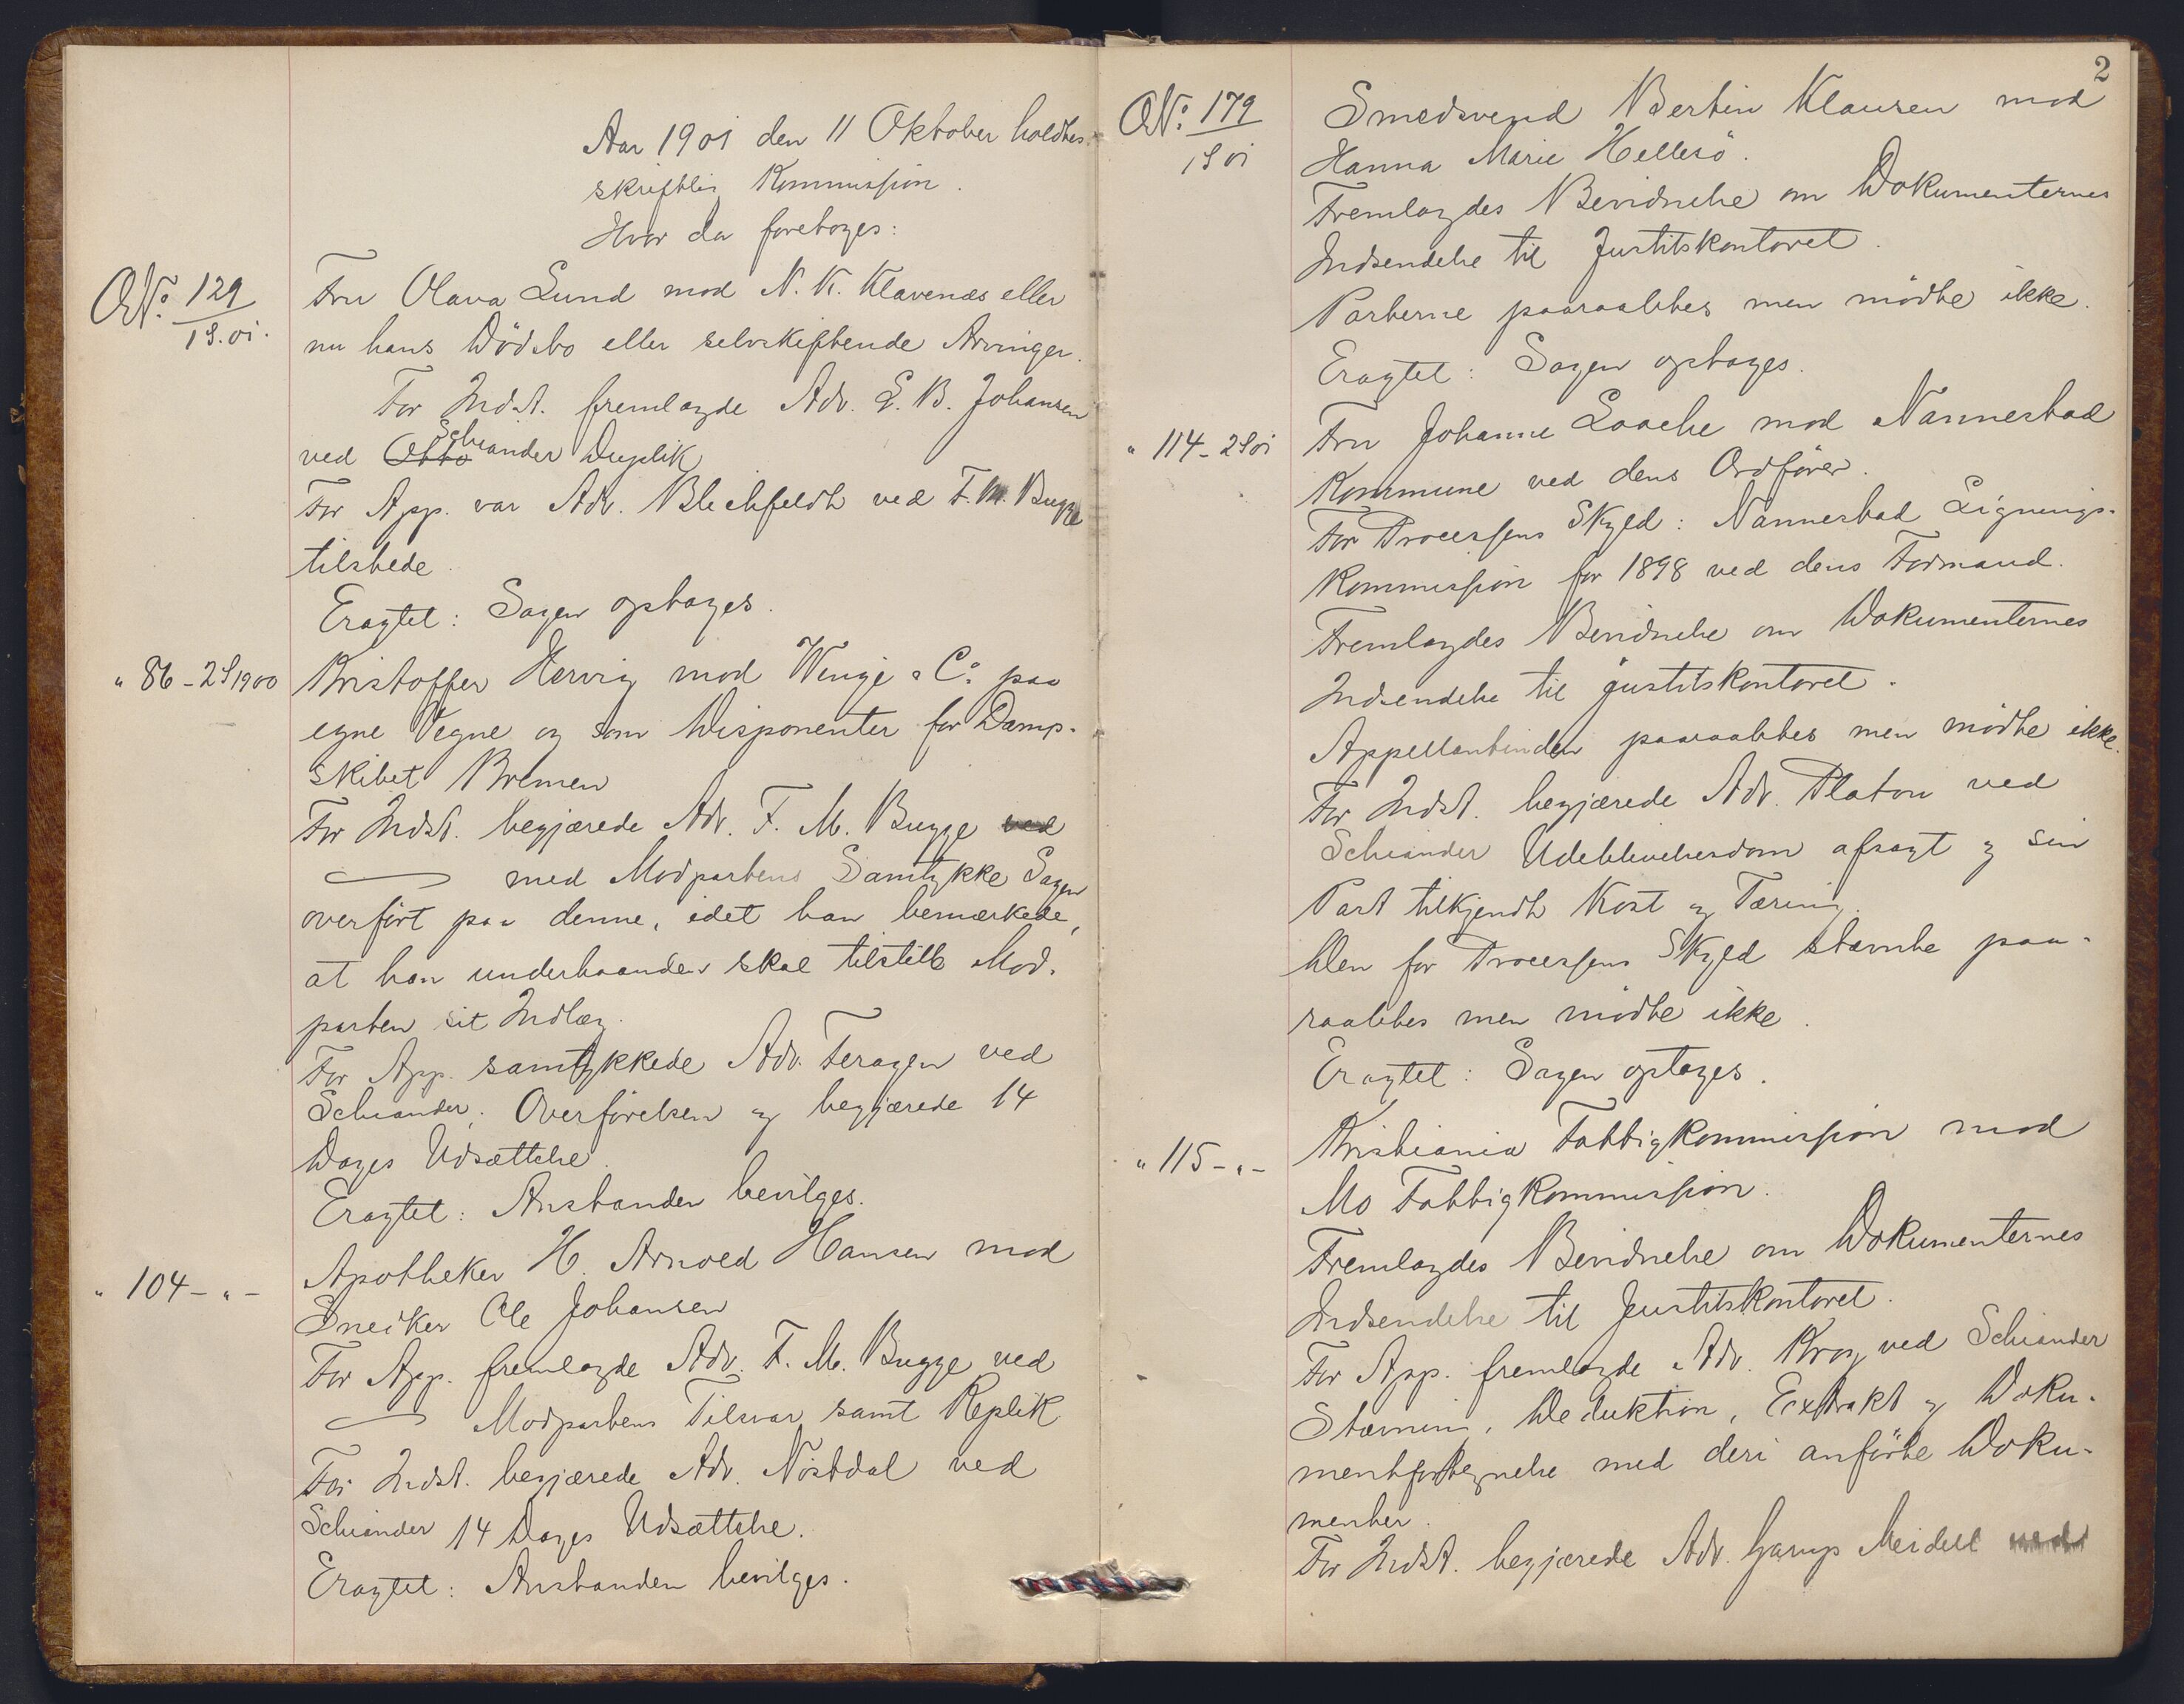 Aar 1901 den 11 Oktober holdtes
skriftlig Kommission.
Hvor da foretoges:
No. 129
1S.01.
Fru Olava Lund mod N. K. Klavenæs eller
nu hans Dödsbo eller selvskiftende Arvinger.
For Indst. fremlagde Adv. E. B. Johansen
ved Schiander Duplik
For App. var Adv. Blechfeldt ved F. M. Bugge
tilstede.
Eragtet: Sagen optages.
" 86 - 2S1900
Kristoffer Hervig mod Winge & Co. paa
egne Vegne og som Disponenter for Damp-
skibet Bremen
For Indst. begjærede Adv. F. M. Bugge ved
med Modpartens Samtykke Sagen
overfört paa denne, idet han bemærkede,
at han underhaanden skal tilstille Mod-
parten sit Indlæg.
For App. samtykkede Adv. Feragen ved
Schiander, Overförelsen og begjærede 14
Dages Udsættelse.
Eragtet: Anstanden bevilges.
" 104 - " -
Apotheker H. Arnold Hansen mod
Snedker Ole Johansen
For App. fremlagde Adv. F. M. Bugge ved
Modpartens Tilsvar samt Replik
For Indst. begjærede Adv. Nöstdal ved
Schiander 14 Dages Udsættelse.
Eragtet: Anstanden bevilges.
2
No. 179
1S01
Smedsvend Bertin Klausen mod
Hanna Marie Hellesö.
Fremlagdes Bevidnelse om Dokumenternes
Indsendelse til Justitskontoret.
Parterne paaraabtes men mödte ikke.
Eragtet: Sagen optages.
" 114 - 2S01
Fru Johanne Laache mod Nannestad
Kommune ved dens Ordförer.
For Processens Skyld: Nannestad Lignings-
kommission for 1898 ved dens Formand.
Fremlagdes Bevidnelse om Dokumenternes
Indsendelse til Justitskontoret.
Appellantinden paaraabtes men mödte ikke.
For Indst. begjærede Adv. Platou ved
Schiander Udeblivelsesdom afsagt og sin
Part tilkjendt Kost og Tæring.
Den for Processens Skyld stævnte paa-
raabtes men mödte ikke.
Eragtet: Sagen optages.
" 115 - " -
Kristiania Fattigkommission mod
Mo Fattigkommission.
Fremlagdes Bevidnelse om Dokumenternes
Indsendelse til Justitskontoret.
For App. fremlagde Adv. Krog ved Schiander
Stævning, Deduktion, Extrakt og Doku-
mentfortegnelse med deri anförte Doku-
menter.
For Indst. begjærede Adv. Gamp Meidell ved